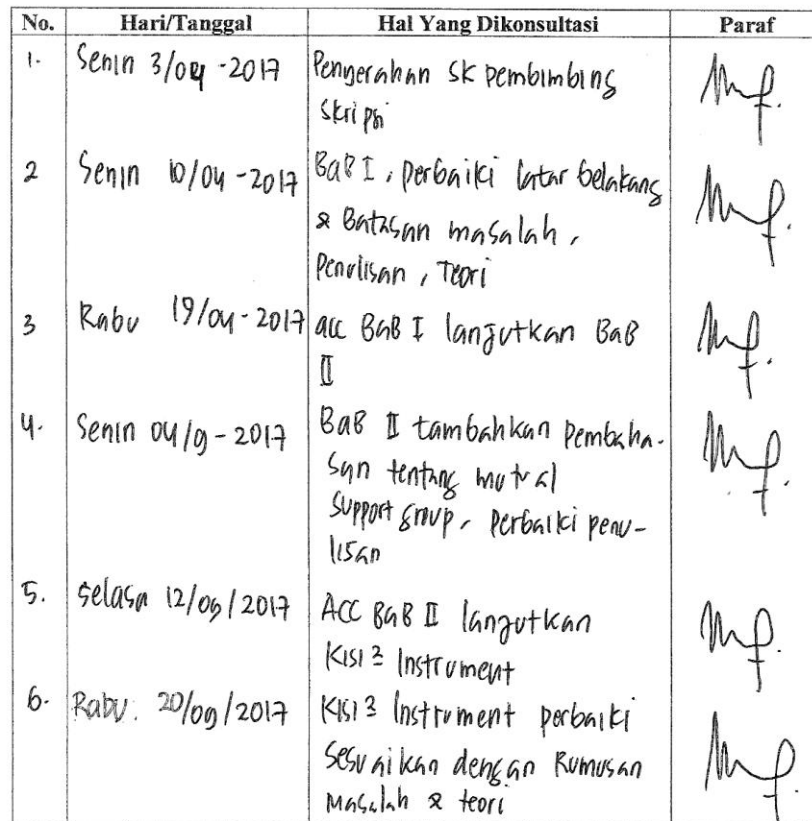 No. Hari/Tanggal Hal Yang Dikonsultasi Paraf
1. Senin 3/04-2017 Penyerahan SK pembimbing
Skripsi
2 Senin 10/04-2017 BaB I, perbaiki latar belakang
& Batasan masalah,
Penulisan, Teori
3 Rabu 19/04-2017 acc BaB I lanjutkan BaB
II
4. Senin 04/9-2017 BaB II tambahkan pembaha-
san tentang mutual
support group, perbaiki penu-
lisan
5. Selasa 12/09/2017 ACC BaB II lanjutkan
Kisi2 Instrument
6. Rabu. 20/09/2017 Kisi2 Instrument perbaiki
sesuaikan dengan Rumusan
Masalah & teori